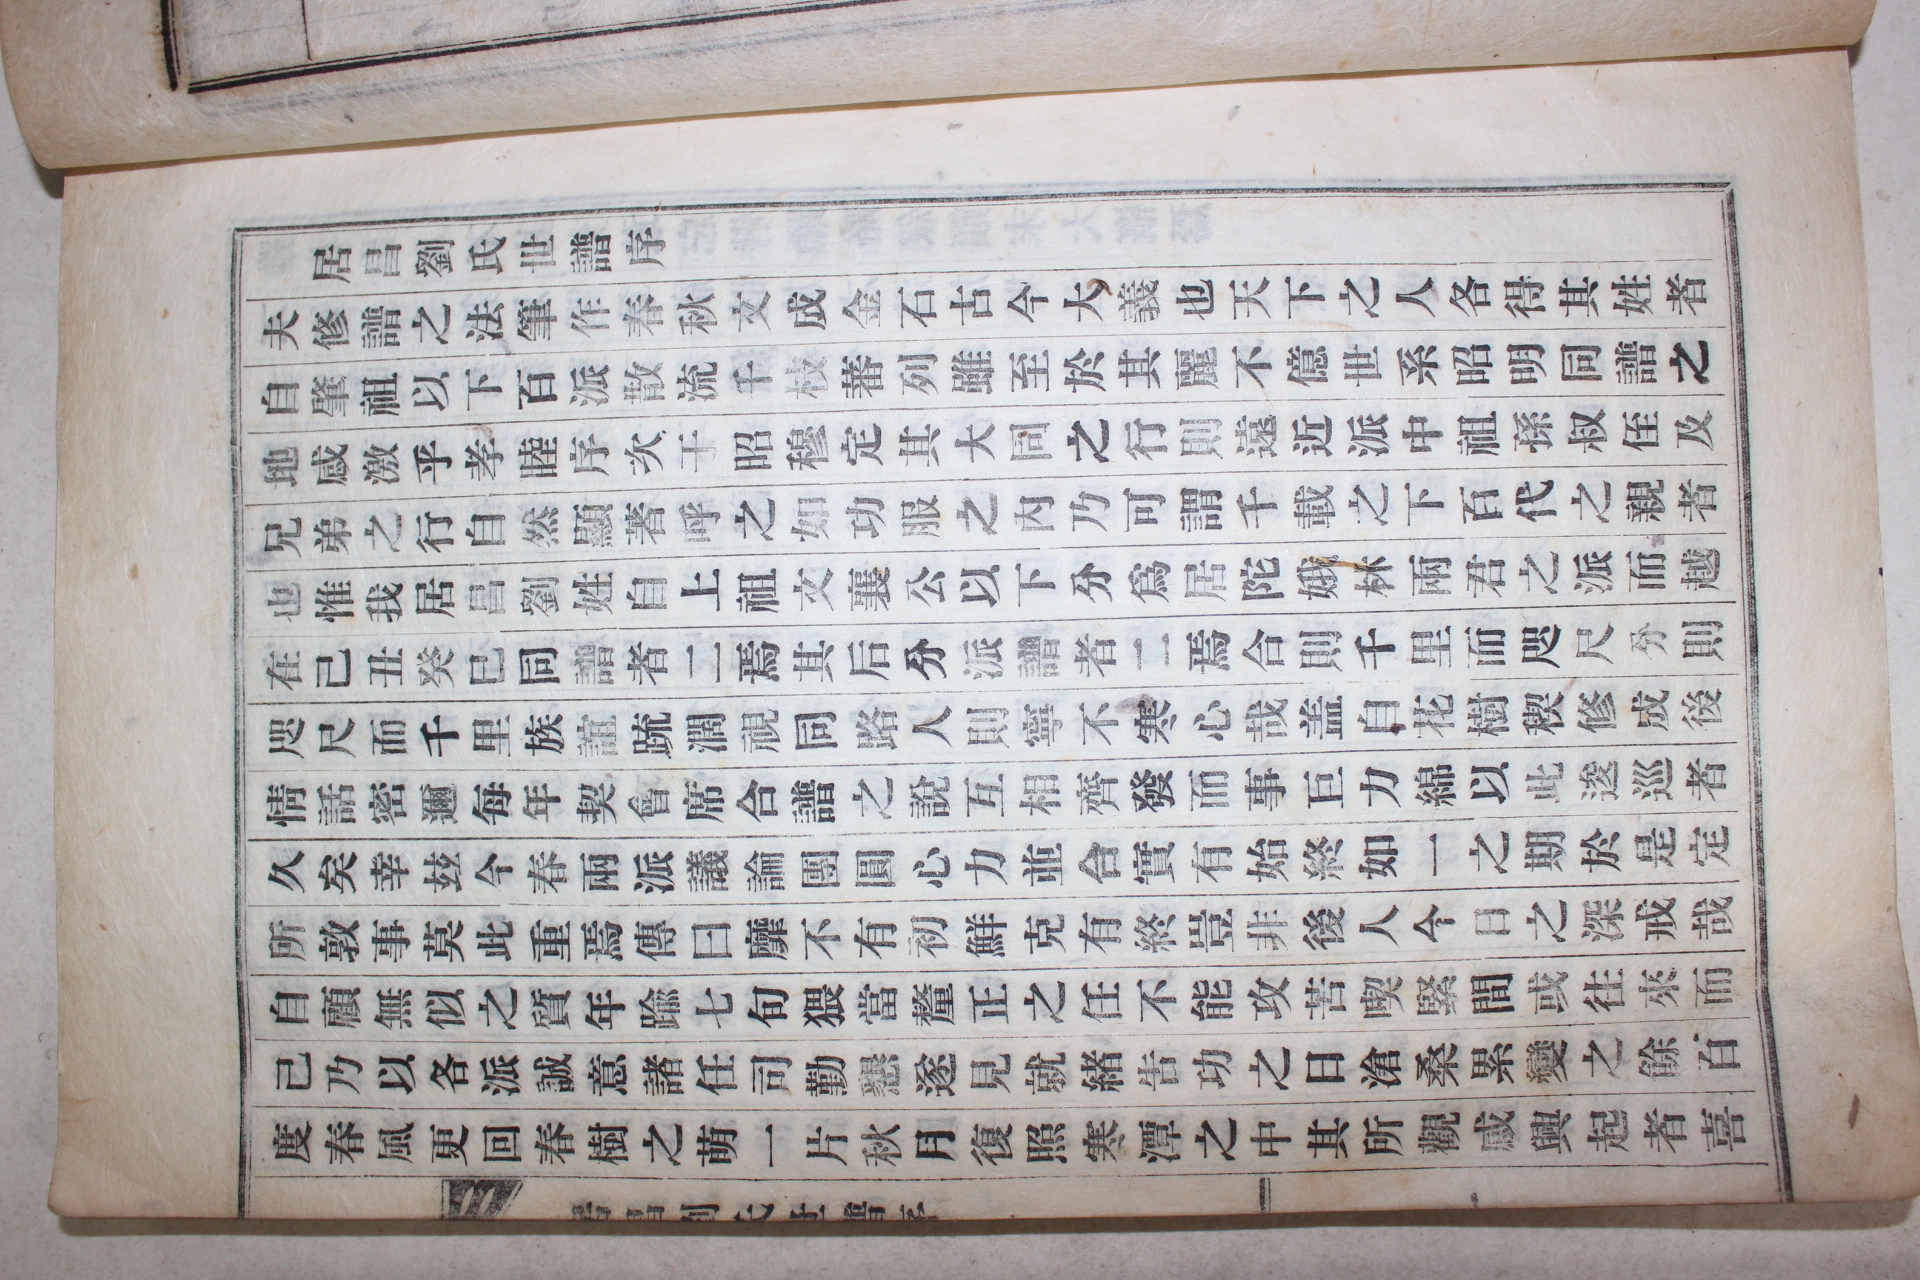 居昌劉氏世譜序
夫修譜之法筆作春秋文成金石古今大義也天下之人各得其姓者
自肇祖以下百派散流千枝蕃列雖至於其麗不億世系昭明同譜之
地感激乎孝睦序次于昭穆定其大同之行則遠近派中祖孫叔侄及
兄弟之行自然顯著呼之如功服之內乃可謂千載之下百代之親者
也惟我居昌劉姓自上祖文襄公以下分爲居陀娥林兩君之派而越
在己丑癸巳同譜者二焉其后分派譜者二焉合則千里而咫尺分則
咫尺而千里族誼疏濶視同路人則寧不寒心哉盖自花樹稧修成後
情話密邇每年契會席合譜之說互相齊發而事巨力綿以此逡巡者
久矣幸玆今春兩派議論團圓心力並合實有始終如一之期於是定
所敦事莫此重焉傳曰靡不有初鮮克有終豈非後人今日之深戒哉
自顧無似之質年踰七旬猥當釐正之任不能攻苦喫緊間或往來而
已乃以各派誠意諸任司勤懇遂見就緖告功之日滄桑累變之餘百
度春風更回春樹之萌一片秋月復照寒潭之中其所觀感興起者喜
居昌劉氏世譜序